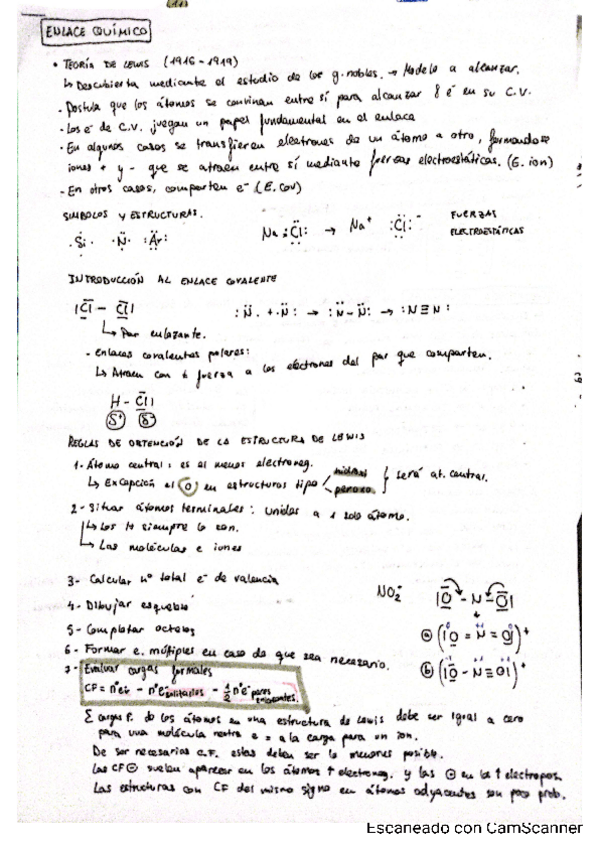 ENLACE QUÍMICO
• TEORÍA DE LEWIS (1916-1919)
↳ Descubierta mediante el estudio de los g. nobles. → Modelo a alcanzar.
- Postula que los átomos se convinan entre sí para alcanzar 8 é en su C.V.
- Los e⁻ de C.V. juegan un papel fundamental en el enlace
- En algunos casos se transfieren electrones de un átomo a otro, formandose
iones + y - que se atraen entre sí mediante fuerzas electroestáticas. (E. ion)
- En otros casos, comparten e⁻ (E. cov)
SIMBOLOS Y ESTRUCTURAS.
·Si· ·N· :Ar: Na :Cl: → Na⁺ :Cl:⁻ FUERZAS
ELECTROESTÁTICAS
INTRODUCCIÓN AL ENLACE COVALENTE
|Cl - Cl| :N· + ·N: → :N-N: → :N≡N:
↳ Par enlazante.
- Enlaces covalentes polares:
↳ Atraen con + fuerza a los electrones del par que comparten.
H - Cl|
δ⁺ δ⁻
REGLAS DE OBTENCIÓN DE LA ESTRUCTURA DE LEWIS
1- Átomo central: es el menos electroneg.
↳ Excepción el O en estructuras tipo } será at. central.
2- Situar átomos terminales: unidos a 1 solo átomo.
↳ Los H siempre lo son.
↳ Las moléculas e iones
3- Calcular nº total e⁻ de valencia
NO₂⁻ |O - N - O|
4- Dibujar esqueleto
5- Completar octetos
ⓐ (|O = N = O|)⁺
6- Formar e. múltiples en caso de que sea necesario.
ⓑ (|O - N ≡ O|)⁺
7- Evaluar cargas formales
CF = nºe⁻ - nºe⁻ solitarios - 1/2 nºe⁻ pares enlazantes.
Σ cargas F. de los átomos en una estructura de Lewis debe ser igual a cero
para una molécula neutra e = a la carga para un ion.
De ser necesarias C.F. estas deben ser lo menores posible.
Las CF ⊖ suelen aparecer en los átomos ↑ electroneg. y las ⊕ en los ↑ electropos.
Las estructuras con CF del mismo signo en átomos adyacentes son poco prob.
Escaneado con CamScanner